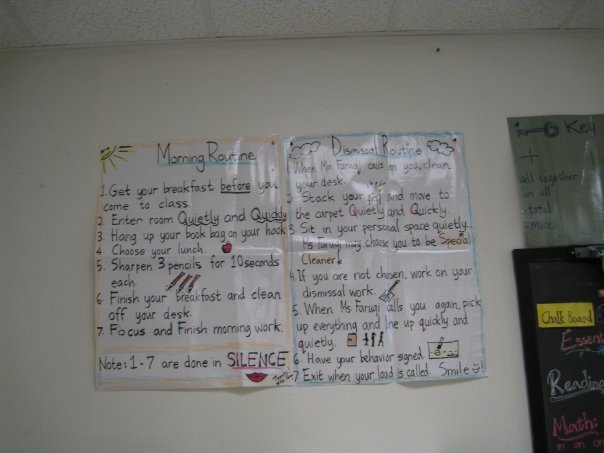 Morning Routine
1. Get your breakfast before you
come to class.
2. Enter room Quietly and Quickly
3. Hang up your book bag on your hook
4. Choose your lunch.
5. Sharpen 3 pencils for 10 seconds
each.
6. Finish your breakfast and clean
off your desk.
7. Focus and Finish morning work.
Note: 1-7 are done in SILENCE
Dismissal Routine
When Ms. Faruqi calls on you, clean
your desk.
2. Stack your and move to
the carpet Quietly and Quickly.
3. Sit in your personal space quietly.
Ms. Faruqi may choose you to be Special
Cleaner!
4. If you are not chosen, work on your
dismissal work.
5. When Ms. Faruqi calls you again, pick
up everything and line up quickly and
quietly.
6. Have your behavior signed.
7. Exit when your load is called. Smile!
Key
+
all together
in all
total
Chalk Board
Reading
Math: